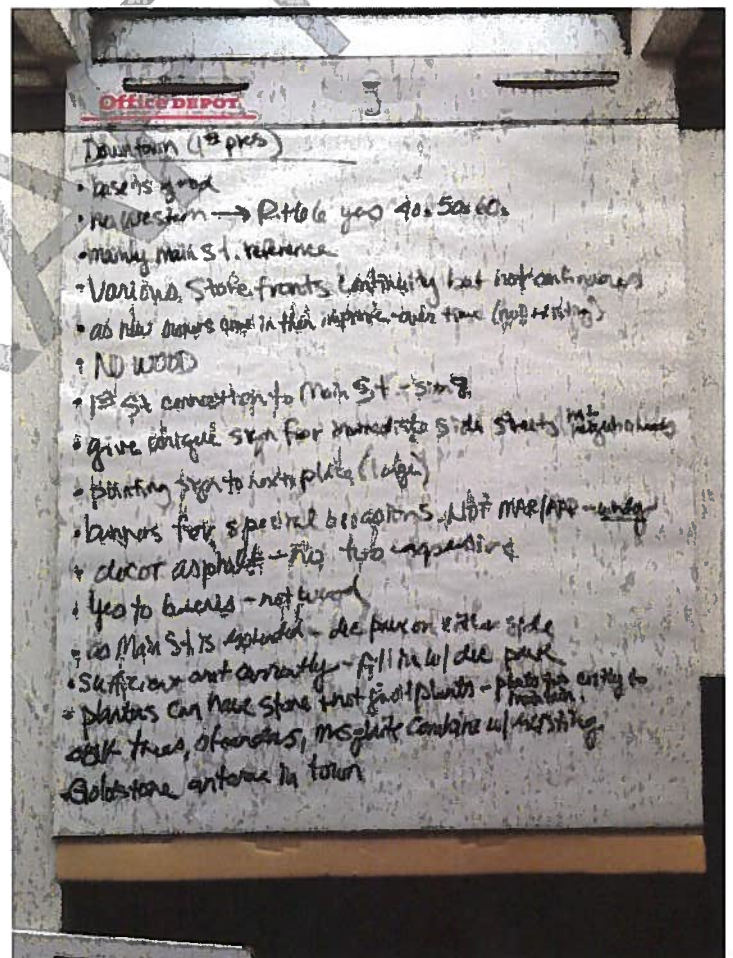 Office DEPOT
3
Downtown (1st pres)
• base is good
• no western → Rt 66 yes 40s 50s 60s
• mainly main St. reference
• Various Store fronts continuity but not continuous
• as new owners come in then improve over time (not existing)
• NO WOOD
• 1st St connection to Main St -
• give unique sign for immediate side streets
• pointing sign to next place (
• banners for special occasions NOT MAR/APR - windy
• decor asphalt - no too expensive
• yes to - not wood
• as Main St is - dec pave on either side
• art currently - fill in w/ dec pave
• planters can have stone not plants - to maintain.
trees, oleanders, mesquite combine w/ existing
• Goldstone antenna in town